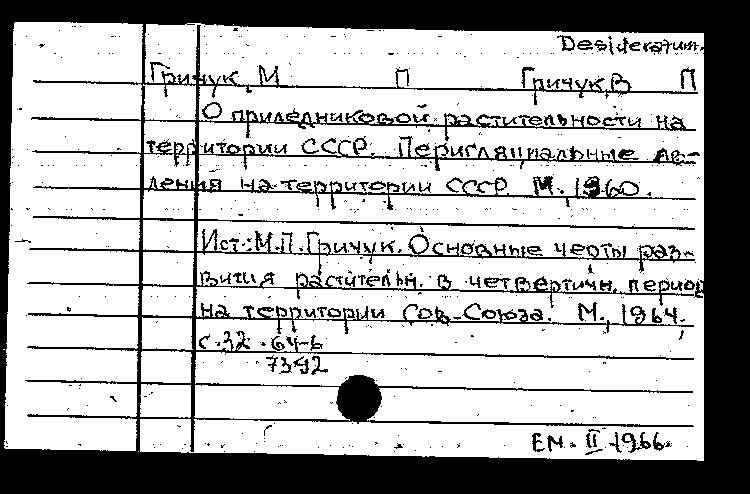 Desideratum.
Гричук, М П Гричук, В П
О приледниковой растительности на
территории СССР. Перигляциальные яв-
ления на территории СССР. М., 1960.
Ист.: М.П. Гричук. Основные черты раз-
вития растительн. в четвертичн. период
на территории Сов. Союза. М., 1964,
с. 32. 64-6
7392
ЕМ. II 1966.